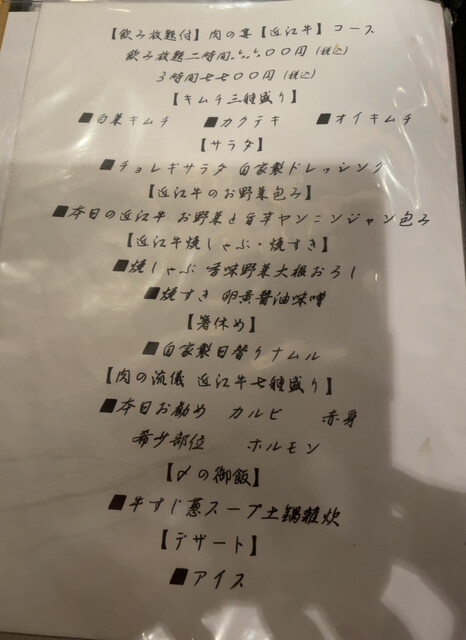 【飲み放題付】肉の宴【近江牛】コース
飲み放題二時間六六〇〇円(税込)
3時間七七〇〇円(税込)
【キムチ三種盛り】
■白菜キムチ ■カクテキ ■オイキムチ
【サラダ】
■チョレギサラダ 自家製ドレッシング
【近江牛のお野菜包み】
■本日の近江牛 お野菜と旨辛ヤンニンジャン包み
【近江牛焼しゃぶ・焼すき】
■焼しゃぶ 香味野菜大根おろし
■焼すき 卵黄醤油味噌
【箸休め】
■自家製日替りナムル
【肉の流儀 近江牛七種盛り】
■本日お勧め カルビ 赤身
希少部位 ホルモン
【〆の御飯】
■牛すじ葱スープ土鍋雑炊
【デザート】
■アイス